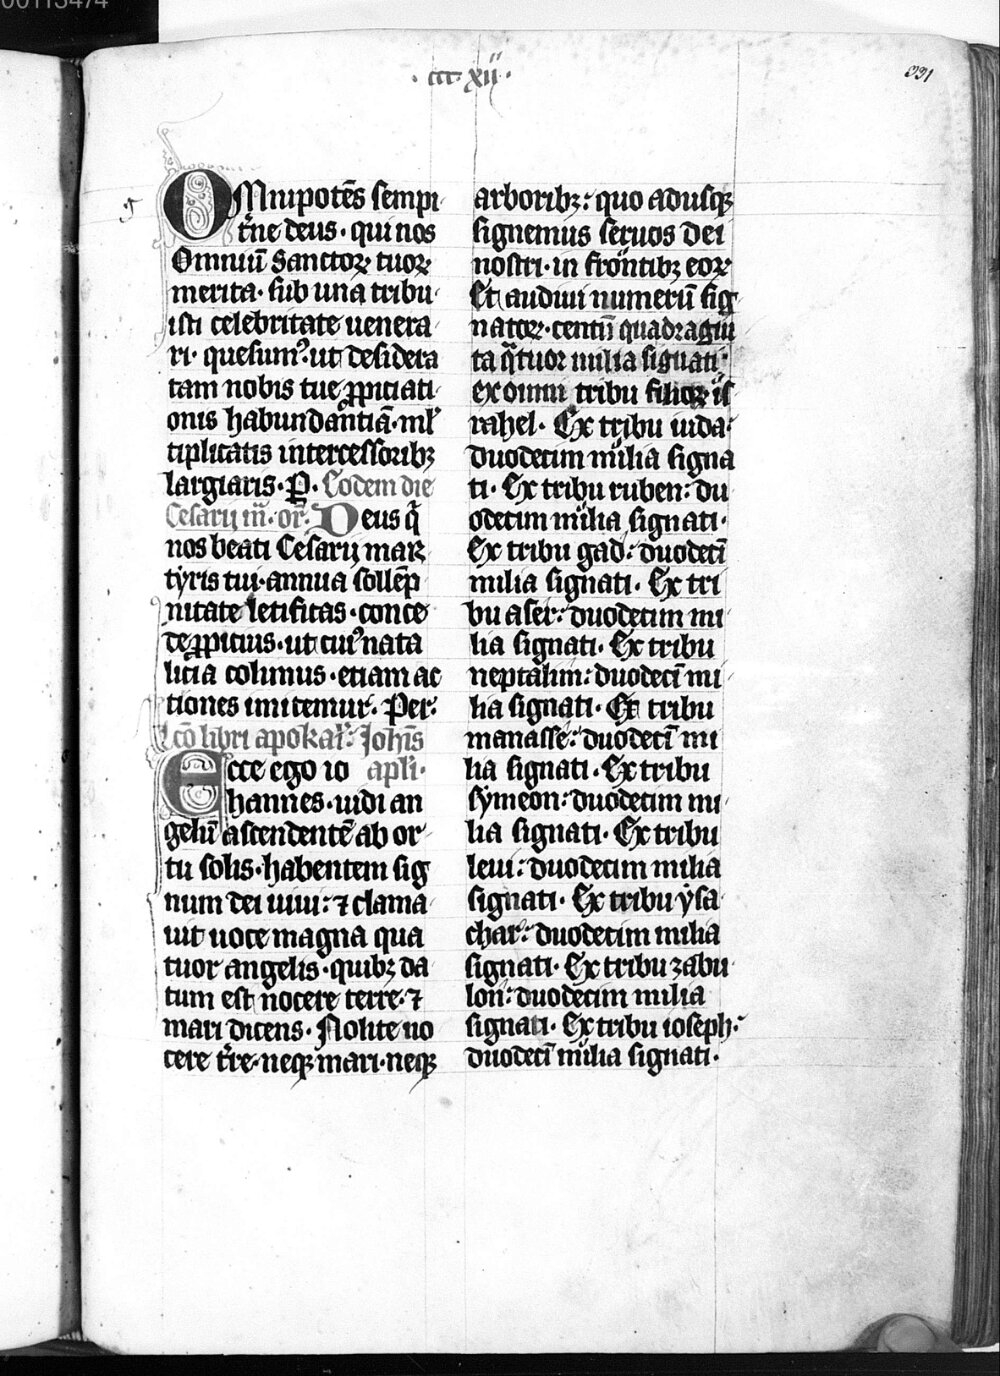 00113474
· ccc xii ·
331
OMnipotēs sempi
t̄ne deus · qui nos
Omniū Sanctoꝝ tuoꝝ
merita · sub una tribu
isti celebritate uenera
ri · quesumꝰ · ut desidera
tam nobis tue ꝓpiciati
onis habundantiā · ml̄
tiplicatis intercessoribꝫ
largiaris · P̱ · Eodem die
Cesarii m̄ · or̄ · Deus q̄
nos beati Cesarii mar
tyris tui · annua sollēp
nitate letificas · conce
de ꝓpicius · ut cuiꝰ nata
licia colimus · etiam ac
tiones imitemur · Per ·
Lc̄o libri apokal̄ · Joh̄is
Ecce ego io apl̄i ·
hannes · uidi an
gelū ascendentē ab or
tu solis · habentem sig
num dei uiui : ⁊ clama
uit uoce magna qua
tuor angelis · quibꝫ da
tum est nocere terre · ⁊
mari dicens · Nolite no
cere t̄re · neqꝫ mari · neqꝫ
arboribꝫ : quo adusqꝫ
signemus seruos dei
nostri · in frōntibꝫ eoꝝ
Et audiui numerū sig
natoꝝ · centū quadragin
ta q̄tuor milia signati ·
ex omni tribu filioꝝ is
rahel · Ex tribu iuda :
duodecim milia signa
ti · Ex tribu ruben : du
odecim milia signati ·
Ex tribu gad : duodecī
milia signati · Ex tri
bu aser : duodecim mi
lia signati · Ex tribu
neptalim : duodecī mi
lia signati · Ex tribu
manasse : duodecī mi
lia signati · Ex tribu
symeon : duodecim mi
lia signati · Ex tribu
leui : duodecim milia
signati · Ex tribu ysa
char : duodecim milia
signati · Ex tribu zabu
lon : duodecim milia
signati · Ex tribu ioseph :
duodecī milia signati ·